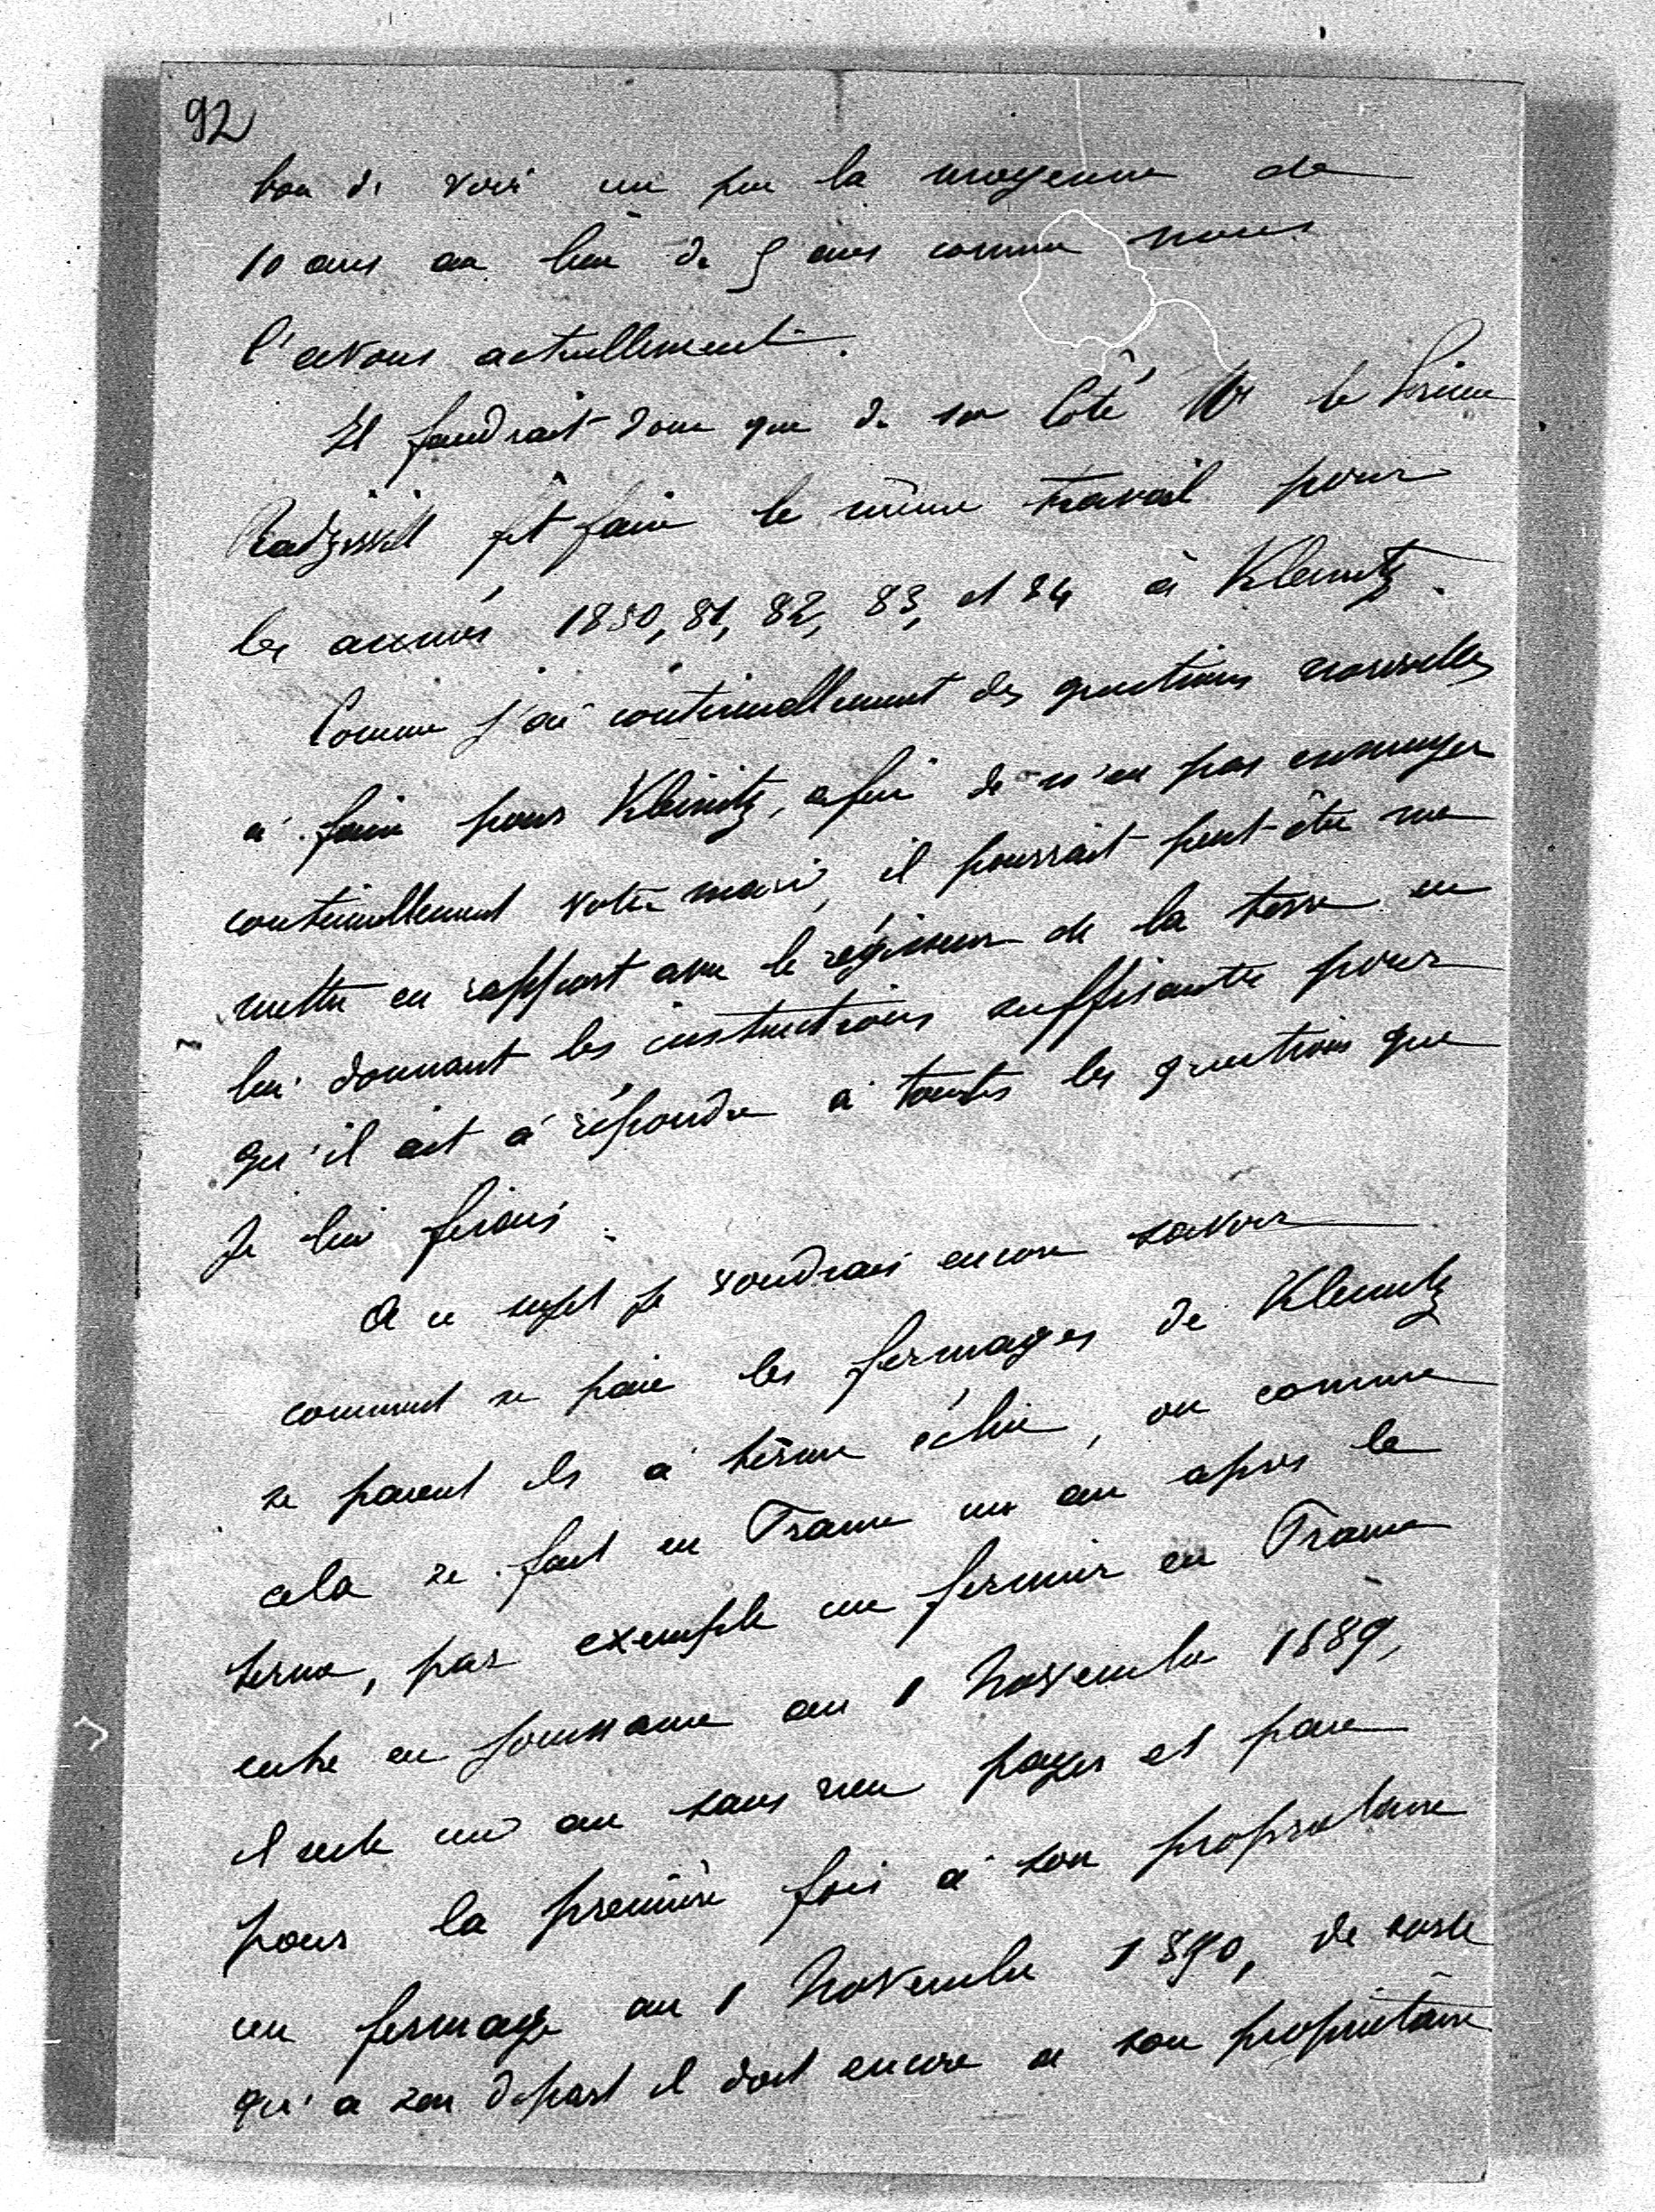 92
bon de voir un peu la moyenne de
10 ans au lieu de 5 ans comme nous
l'avons actuellement.
Il faudrait donc que de son Côté Mr le Prince
Radziwill fit faire le même travail pour
les années 1880, 81, 82, 83, et 84 à Kleinitz.
Comme j'ai continuellement des questions nouvelles
à faire pour Kleinitz, afin de n'en pas ennuyer
continuellement votre mari, il pourrait peut-être me
mettre en rapport avec le régisseur de la terre en
lui donnant les instructions suffisantes pour
qu'il ait à répondre à toutes les questions que
je lui ferais.
A ce sujet je voudrais encore savoir
comment se paie les fermages de Kleinitz
se paient ils à terme échu, ou comme
cela se fait en France un an après le
terme, par exemple un fermier en France
entre en jouissance au 1 Novembre 1889,
il reste un an sans rien payer et paie
pour la première fois à son proprietaire
un fermage au 1 Novembre 1890, de sorte
qu'a son départ il doit encore a son propriétaire